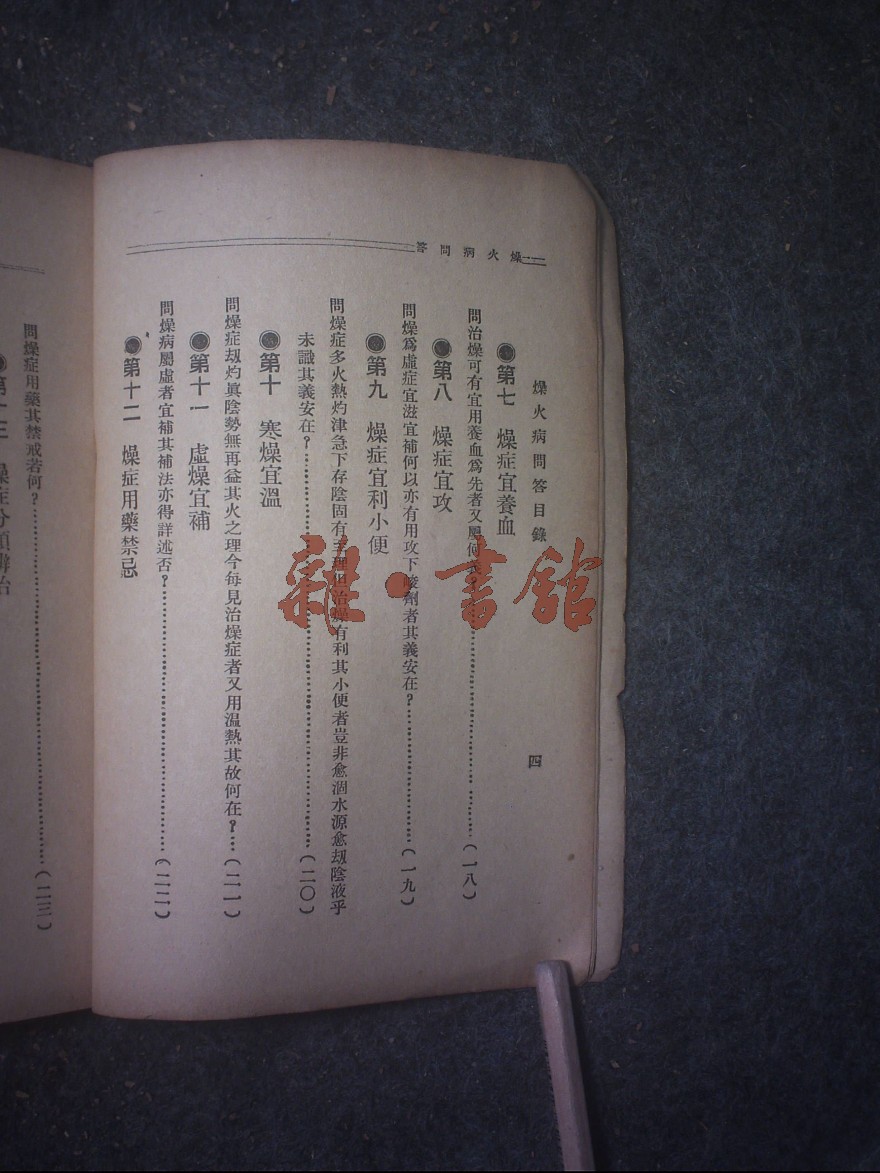 燥火病問答
燥火病問答目錄
四
●第七　燥症宜養血
問治燥可有宜用養血爲先者又屬何義？(一八)
●第八　燥症宜攻
問燥爲虛症宜滋宜補何以亦有用攻下峻劑者其義安在？(一九)
●第九　燥症宜利小便
問燥症多火熱灼津急下存陰固有至理但治燥有利其小便者豈非愈涸水源愈刼陰液乎
未識其義安在？(二〇)
●第十　寒燥宜溫
問燥症刼灼眞陰勢無再益其火之理今每見治燥症者又用温熱其故何在？(二一)
●第十一　虛燥宜補
問燥病屬虛者宜補其補法亦得詳述否？(二二)
●第十二　燥症用藥禁忌
問燥症用藥其禁戒若何？(二三)
●第十三　燥症分類辨治
雜·書館